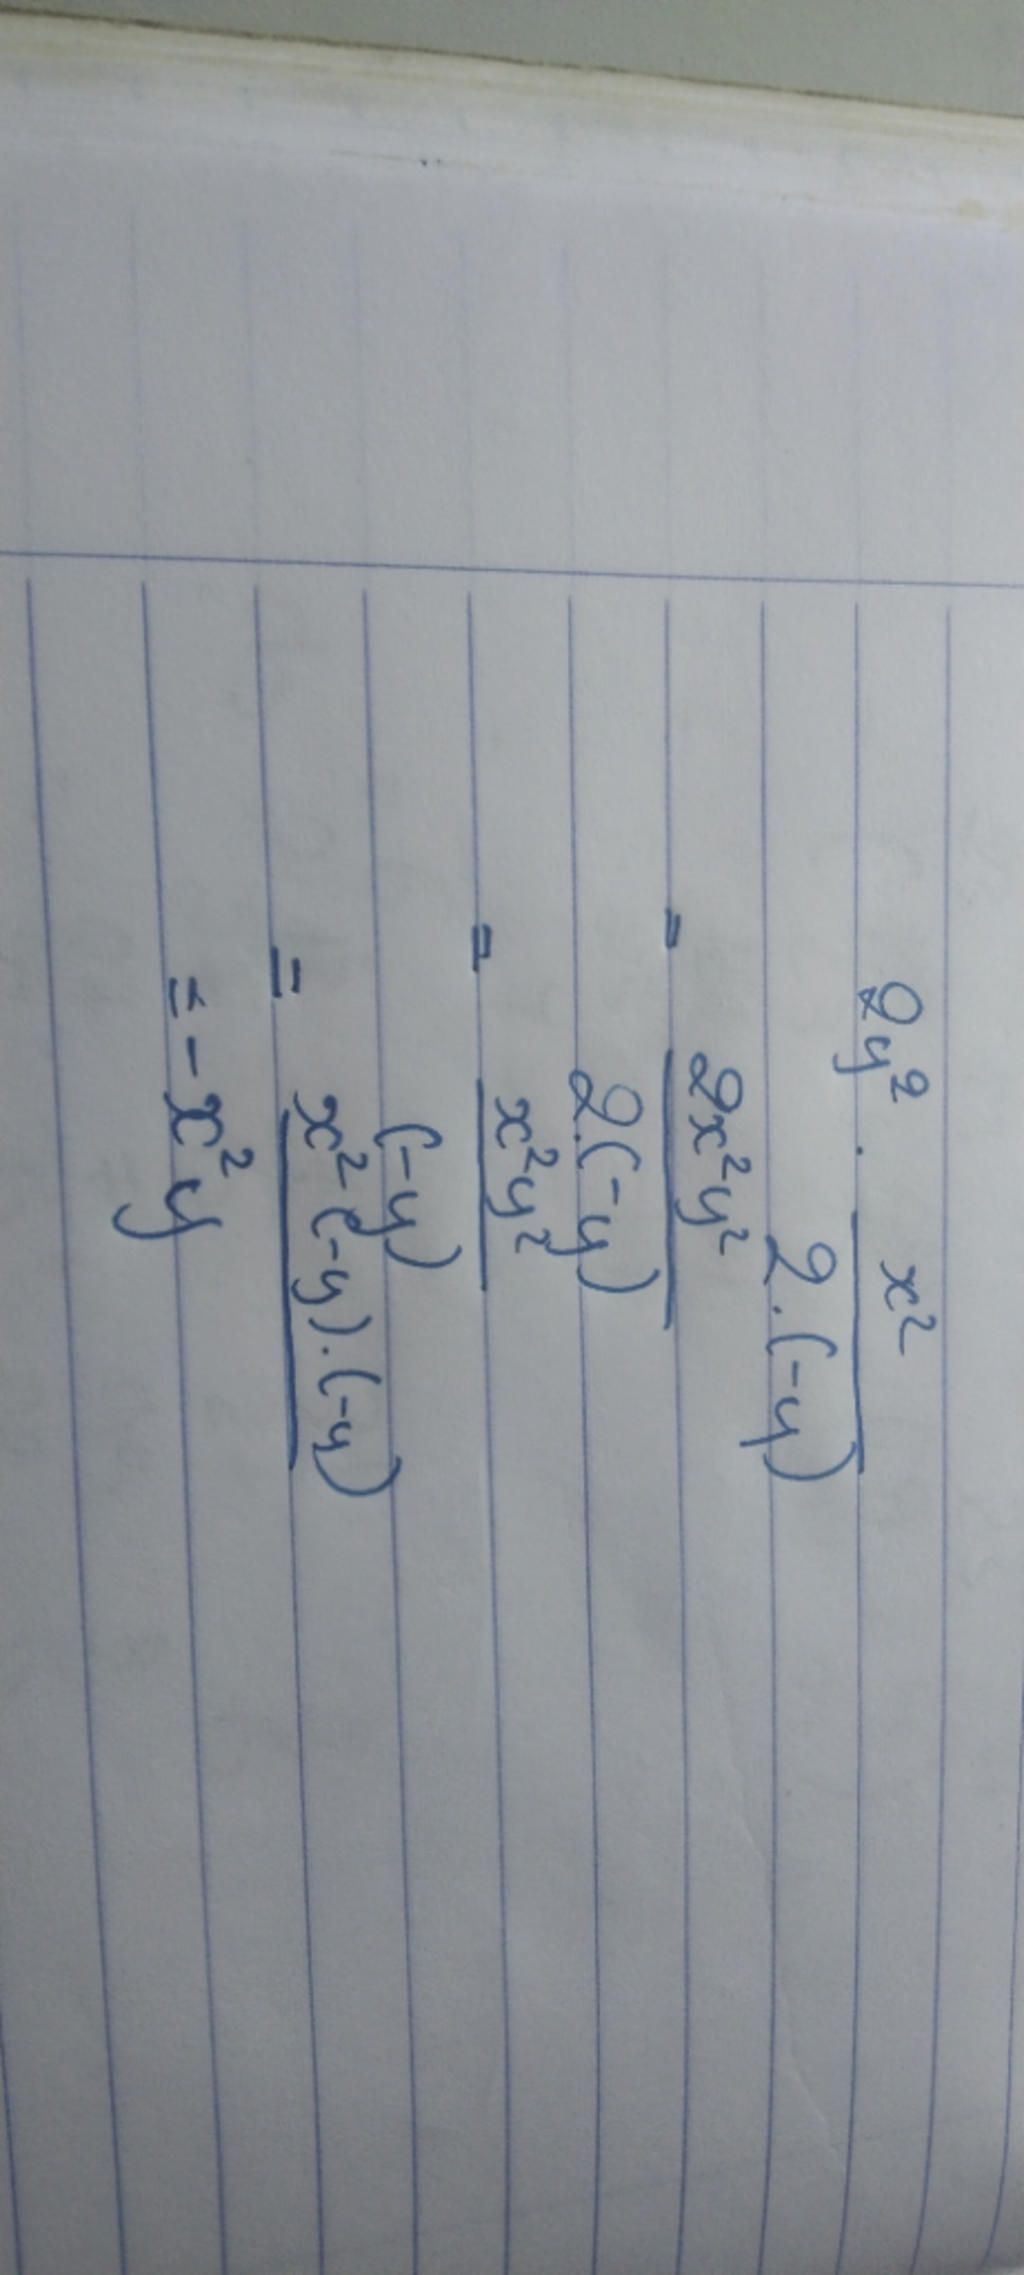 2y² . x²
2.(-y)
= 2x²y²
2.(-y)
= x²y²
(-y)
= x² (-y).(-y)
= -x²y